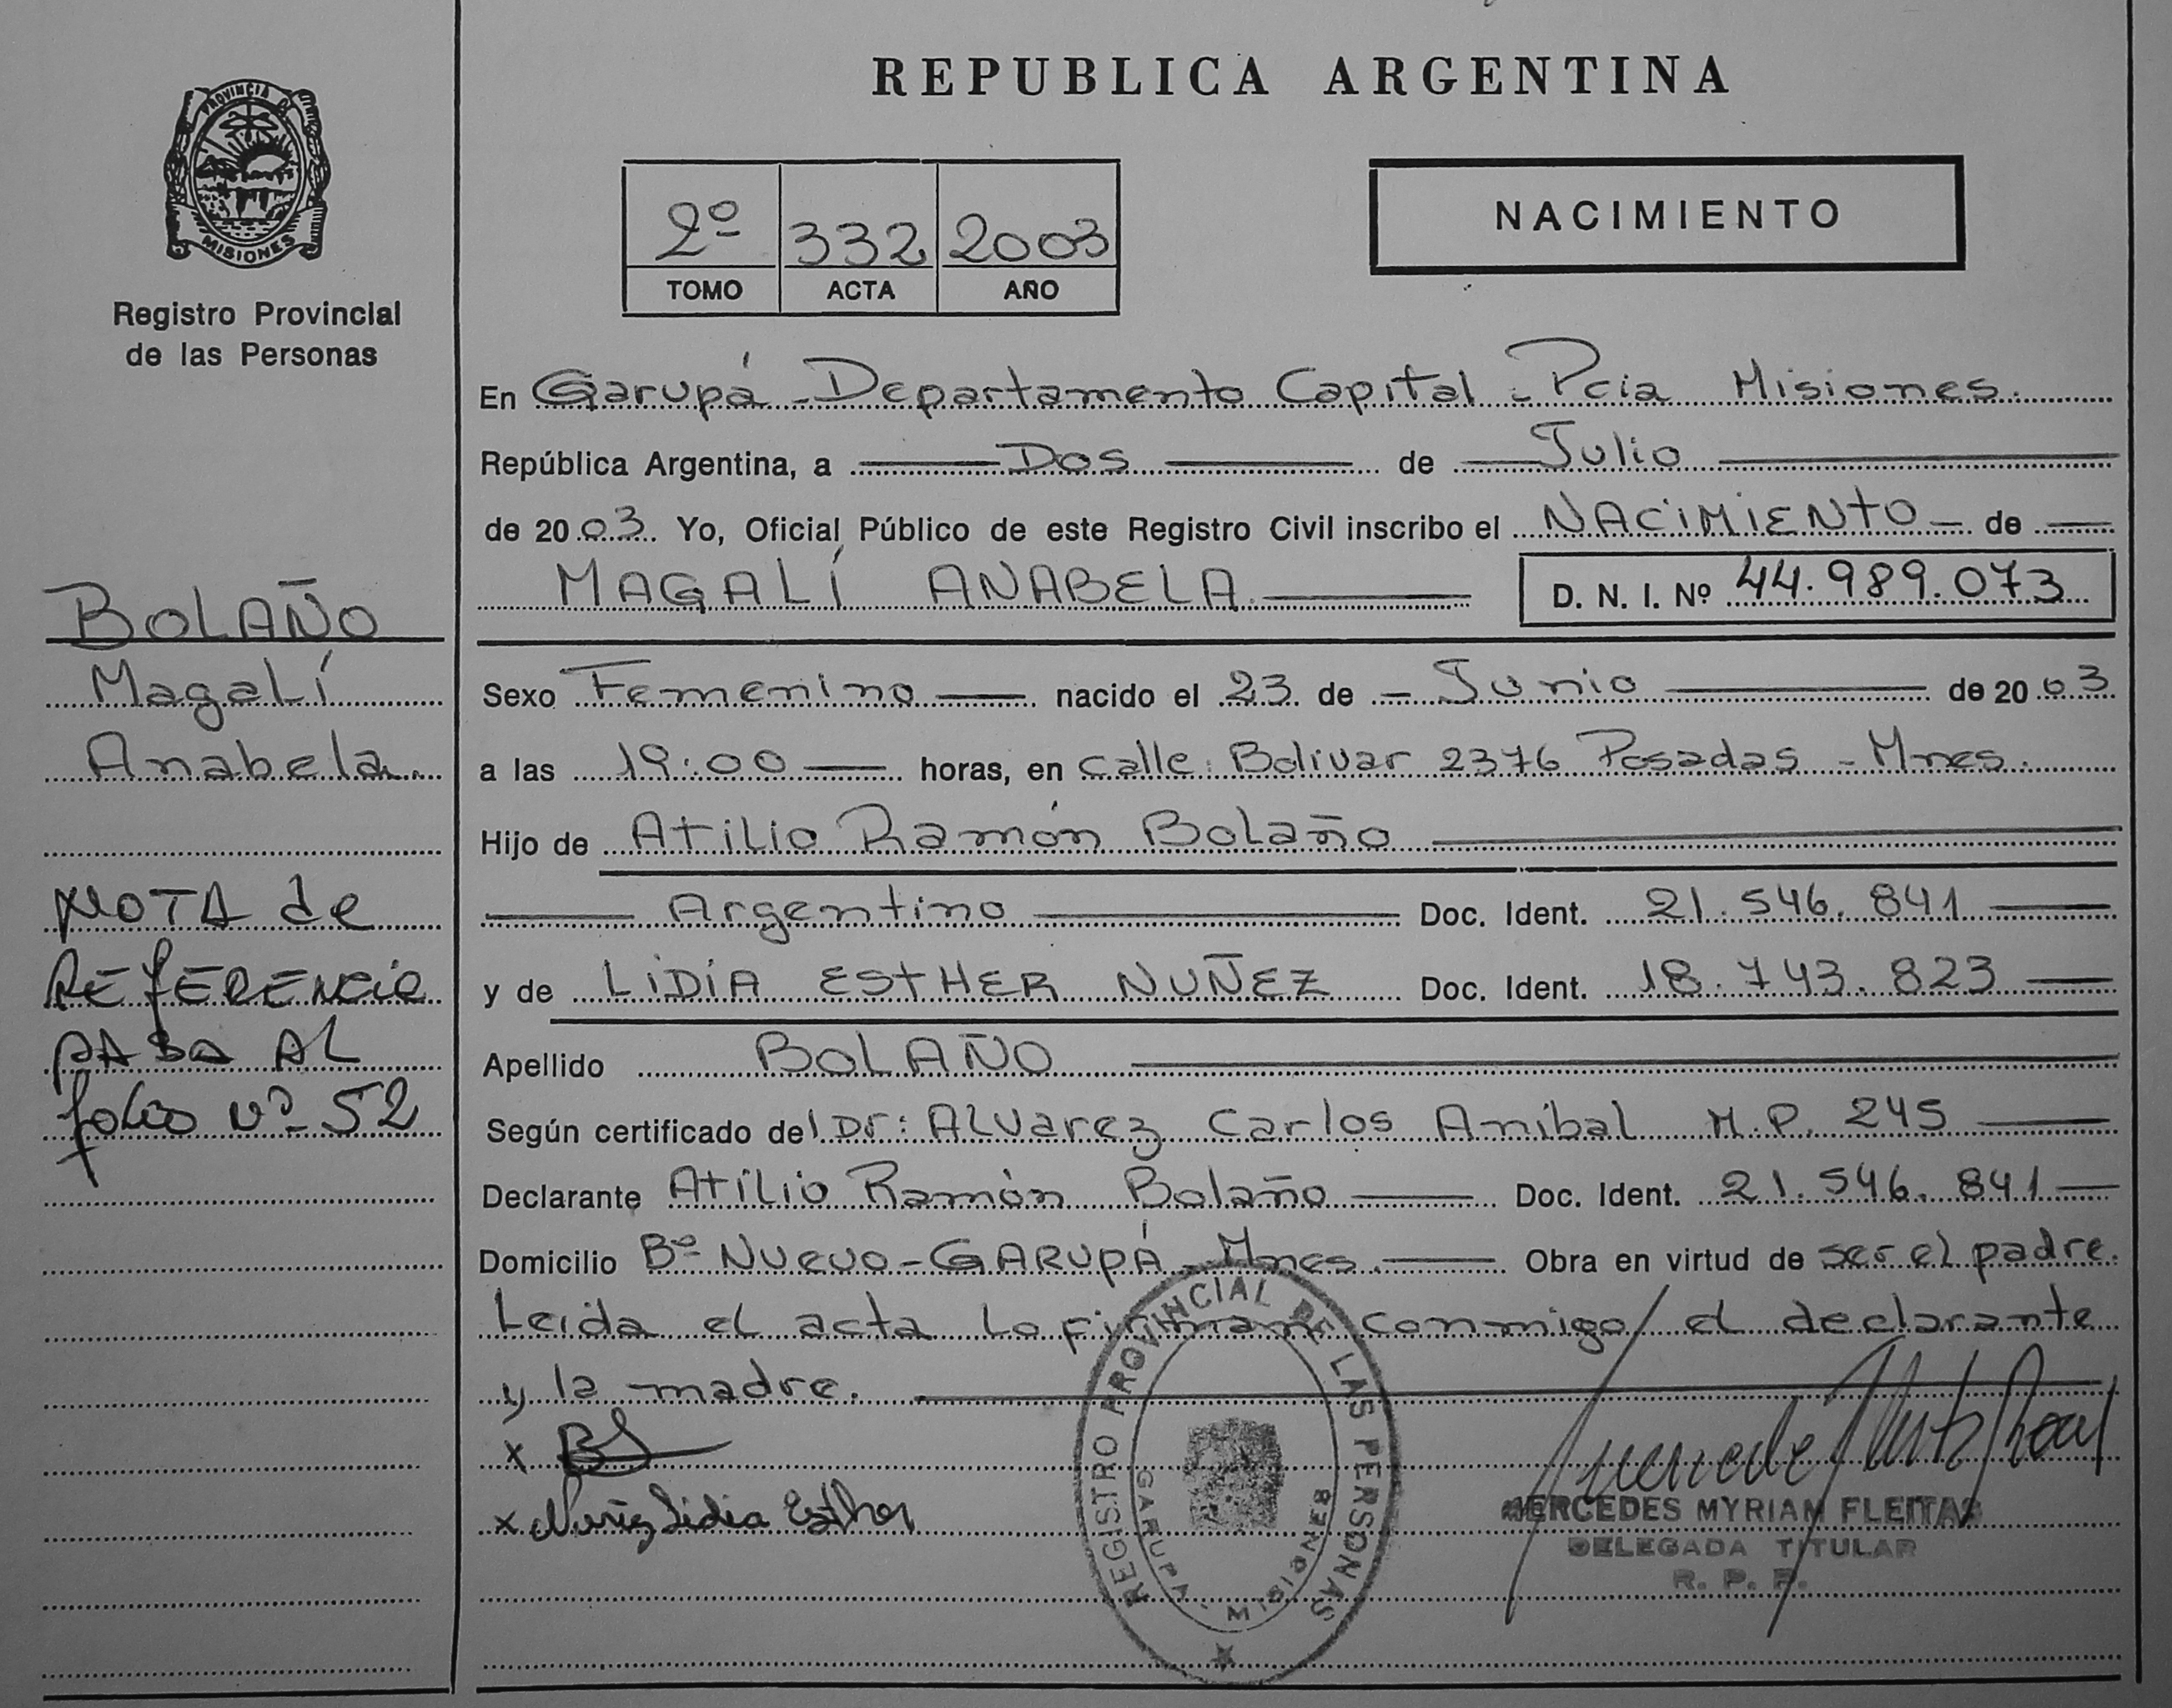 REPUBLICA ARGENTINA
PROVINCIA DE
MISIONES
Registro Provincial
de las Personas
2º 332 2003
TOMO ACTA AÑO
NACIMIENTO
En Garupá - Departamento Capital - Pcia Misiones.
República Argentina, a Dos de Julio
de 2003. Yo, Oficial Público de este Registro Civil inscribo el NACIMIENTO - de
MAGALÍ ANABELA
D. N. I. Nº 44.989.073
BOLAÑO
Magalí
Anabela
Sexo Femenino nacido el 23 de - Junio de 2003
a las 19:00 horas, en calle: Bolivar 2376 Posadas - Mnes.
Hijo de Atilio Ramón Bolaño
Argentino Doc. Ident. 21.546.841
y de LIDIA ESTHER NUÑEZ Doc. Ident. 18.743.823
Apellido BOLAÑO
Según certificado del Dr: ALVarez Carlos Anibal M.P. 245
Declarante Atilio Ramón Bolaño Doc. Ident. 21.546.841
Domicilio Bº NUEVO - GARUPÁ - Mnes. Obra en virtud de ser el padre.
Leida el acta lo firman conmigo el declarante
y la madre.
NOTA de
REFERENCIA
PASA AL
folio nº 52
x
x Nuñez Lidia Esther
REGISTRO PROVINCIAL DE LAS PERSONAS
GARUPA - MISIONES
MERCEDES MYRIAM FLEITAS
DELEGADA TITULAR
R. P. P.